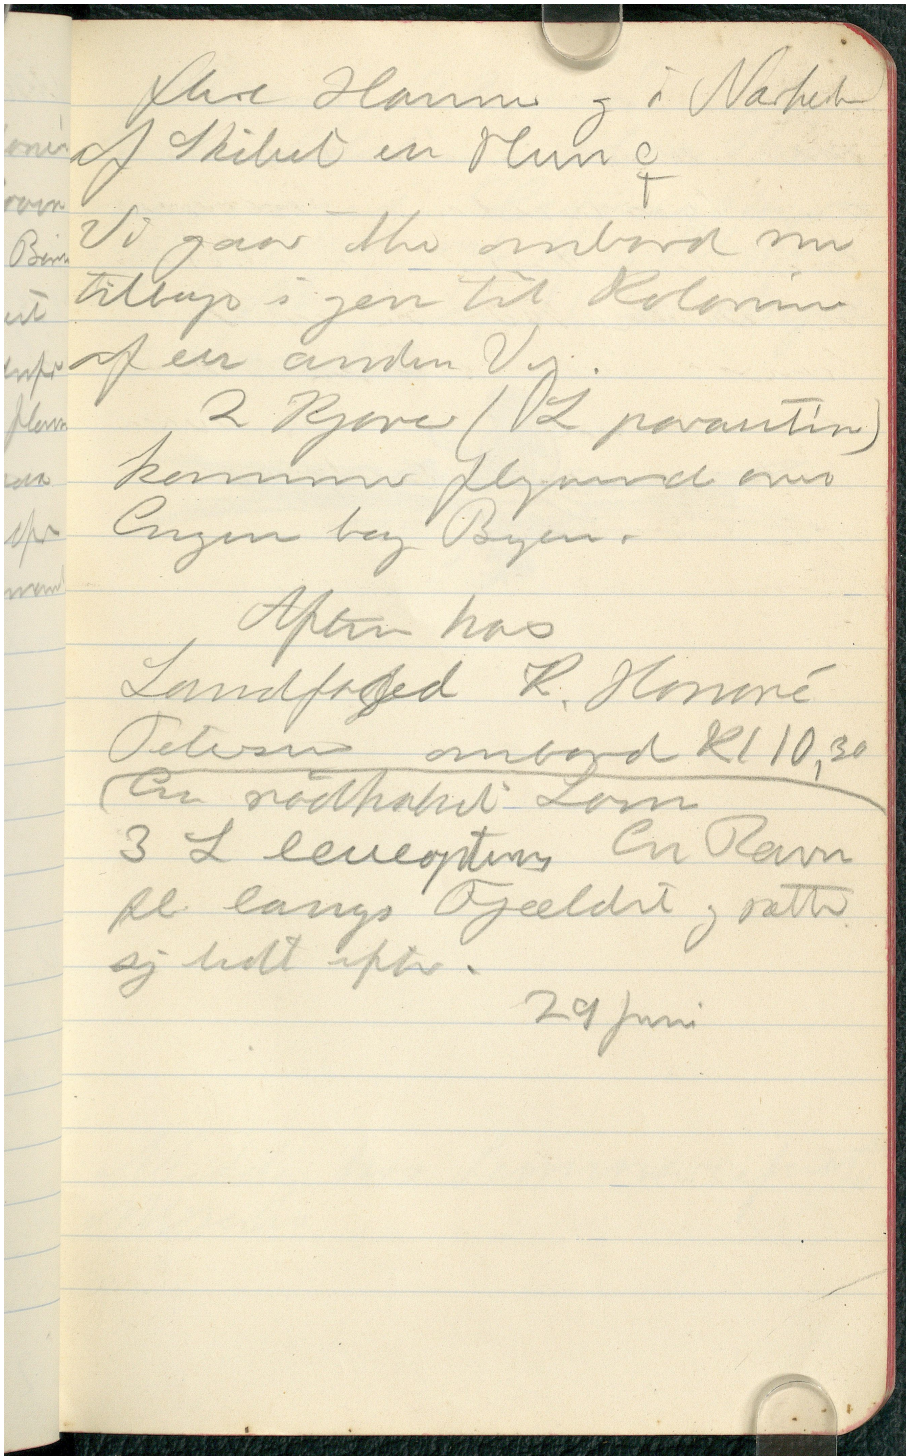 flere Hanner og i Nærheden
af Skibet en Hun ♀
Vi gaar the ombord nu
tilbage i gen til Kolonien
af en anden Vej.
2 Kjover (L parasitica)
kommer flyvende over
Engen bag Byen.
Aften hos
Landfoged K. Honoré
Petersen ombord Kl 10,30
En rødhalset Lom
3 L leucopterus En Ravn
fl. langs Fjeldet og satte
sig lidt efter.
29 Juni